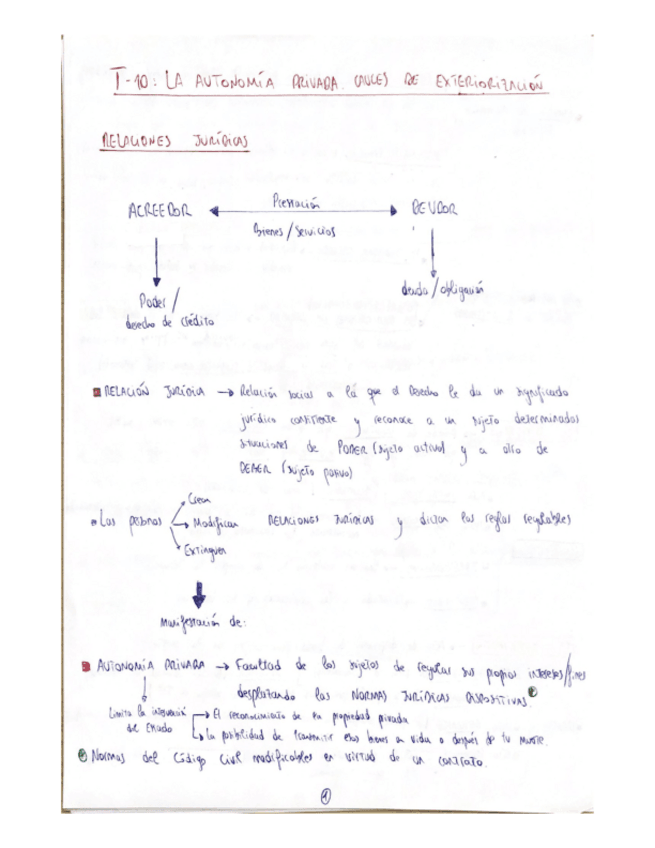 T-10: LA AUTONOMÍA PRIVADA. CAUCES DE EXTERIORIZACIÓN
RELACIONES JURÍDICAS
ACREEDOR Prestación DEUDOR
Bienes / Servicios
Poder / deuda / obligación
derecho de crédito
RELACIÓN JURÍDICA → Relación social a la que el Derecho le da un significado
jurídico y reconoce a un sujeto determinados
situaciones de PODER (sujeto activo) y a otro de
DEBER (sujeto pasivo)
Crean
Las personas → Modifican RELACIONES JURÍDICAS y dictan las reglas
Extinguen
Manifestación de:
AUTONOMÍA PRIVADA → Facultad de los sujetos de regular sus propios intereses/fines
desplazando las NORMAS JURÍDICAS DISPOSITIVAS.
Limita la intervención → El reconocimiento de la propiedad privada
del Estado → La posibilidad de transmitir esos bienes en vida o después de tu muerte.
Normas del Código Civil modificables en virtud de un contrato.
1